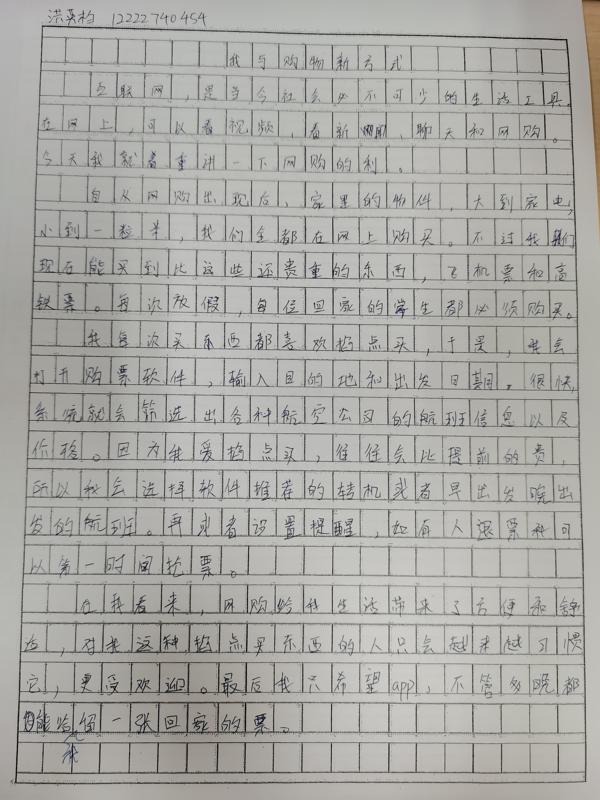 洪英杓 12222740454
我与购物新方式
互联网，是当今社会必不可少的生活工具。
在网上，可以看视频，看新闻，聊天和网购。
今天我就着重讲一下网购的利。
自从网购出现后，家里的物件，大到家电，
小到一粒米，我们全都在网上购买。不过我们
现在能买到比这些还贵重的东西，飞机票和高
铁票。每次放假，每位回家的学生都必须购买。
我每次买东西都喜欢掐点买，于是，我会
打开购票软件，输入目的地和出发日期。很快，
系统就会筛选出各种航空公司的航班信息以及
价格。因为我爱掐点买，往往会比提前的贵，
所以我会选择软件推荐的转机或者早出发晚出
发的航班。再或者设置提醒，如有人退票我可
以第一时间抢票。
在我看来，网购给我生活带来了方便和舒
适，对我这种掐点买东西的人只会越来越习惯
它，更受欢迎。最后我只希望app，不管多晚都
能给我留一张回家的票。